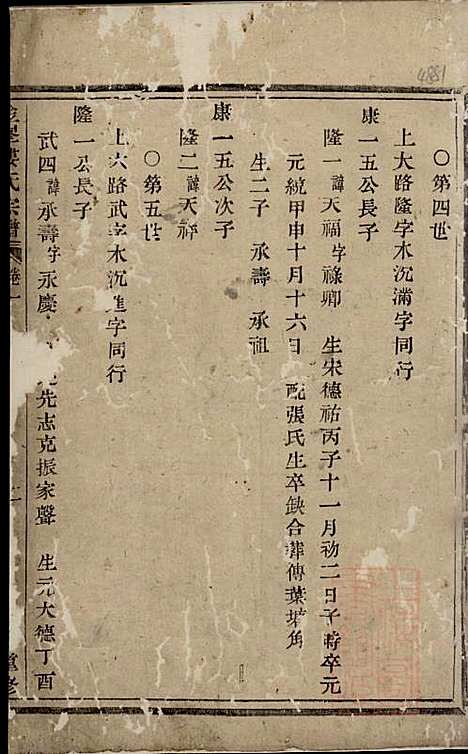 4881
○第四世
上大路隆字水沉滿字同行
康一五公長子
隆一諱天福字祿卿 生宋德祐丙子十一月初二日子時卒元
元統甲申十月十六日 配張氏生卒缺合葬傳葉塘角
生二子 承壽 承祖
康一五公次子
隆二諱天祥
○第五世
上大路武字水沉進字同行
隆一公長子
武四諱承壽字永慶 先志克振家聲 生元大德丁酉
氏宗譜 卷一